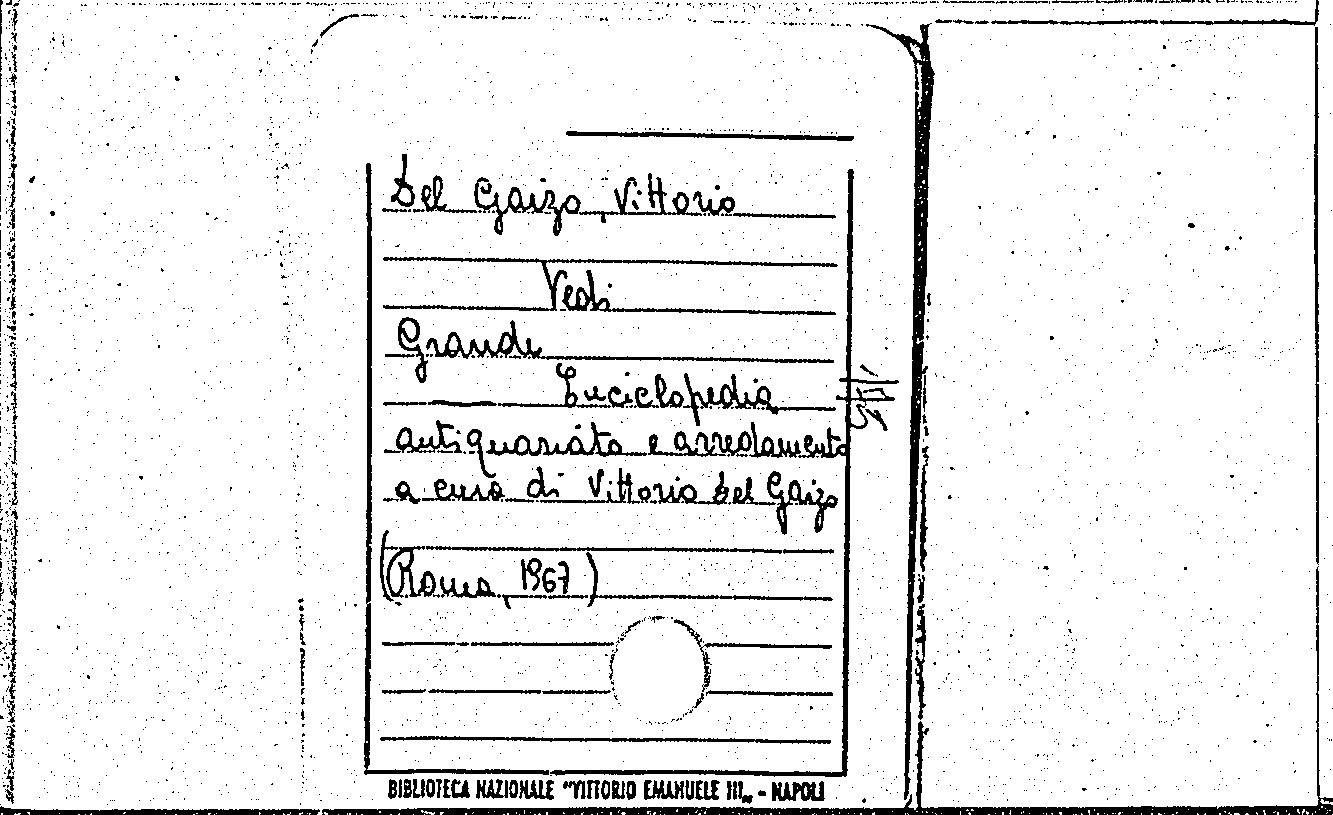 Del Gaizo, Vittorio
Vedi
Grande
Enciclopedia
antiquariato e arredamento
a cura di Vittorio Del Gaizo
(Roma, 1967)
BIBLIOTECA NAZIONALE "VITTORIO EMANUELE III„ - NAPOLI